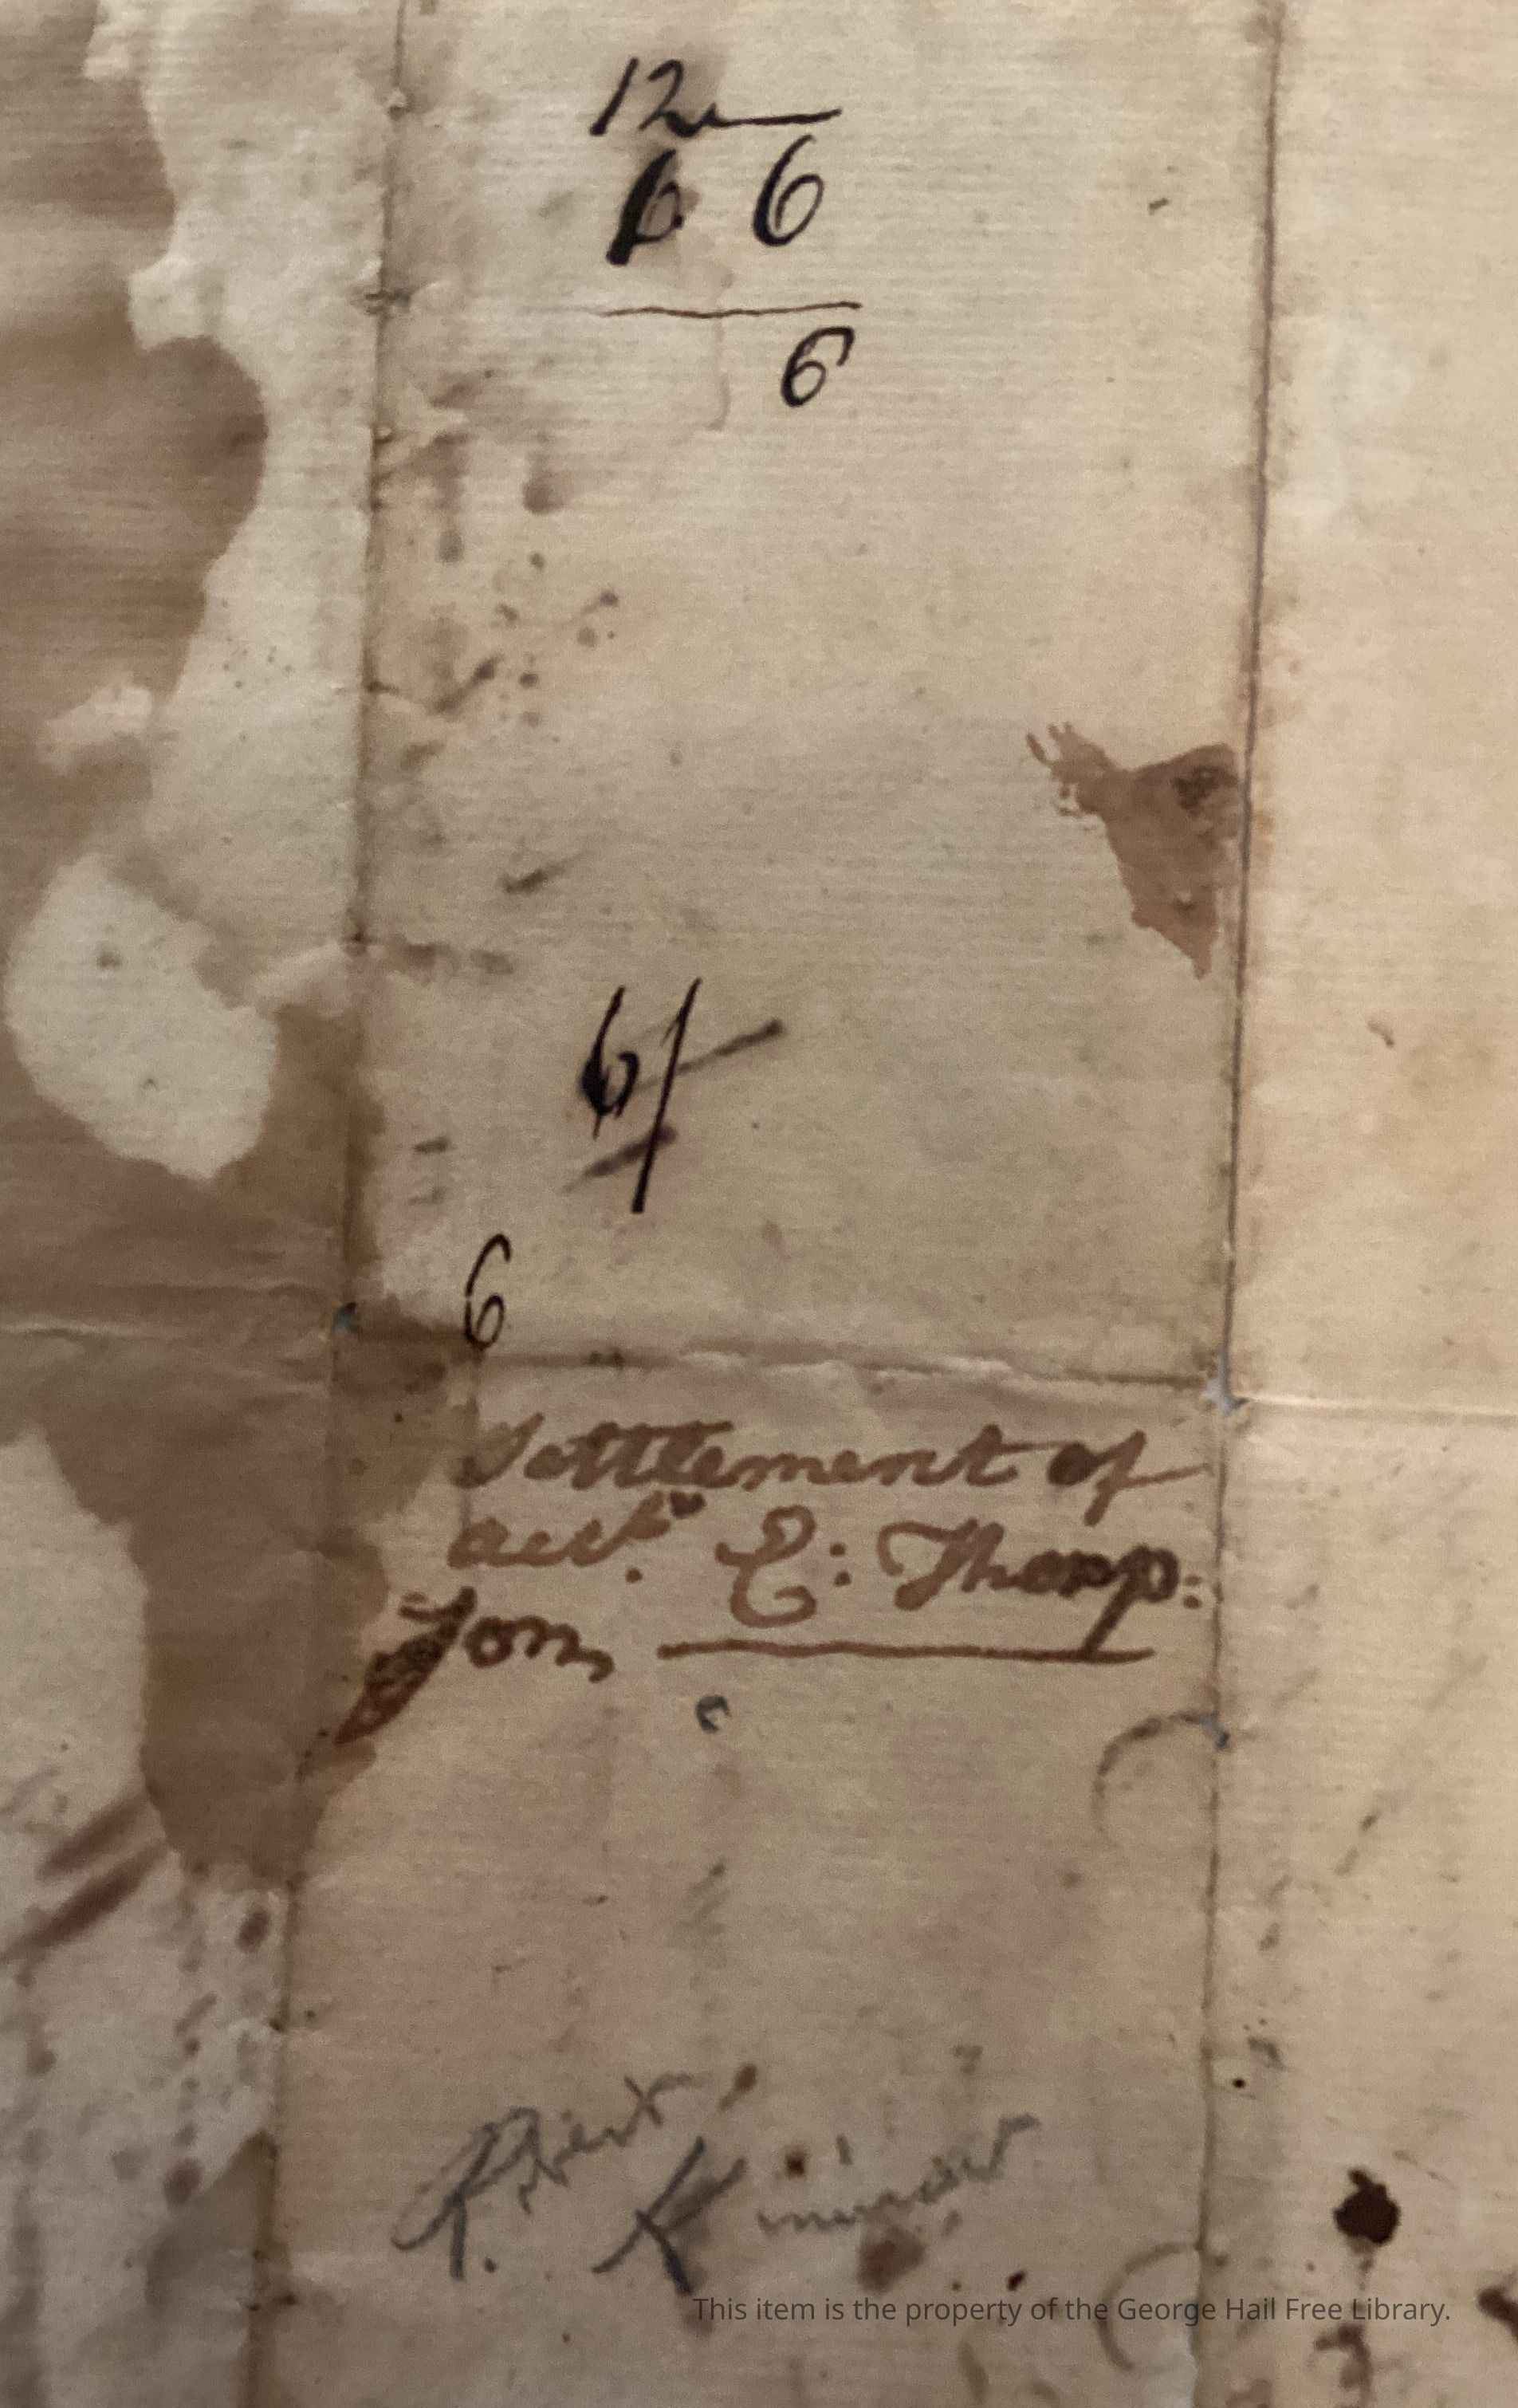 12
6 6
6
6/
6
Settlement of
acct. E: Thorp:
Jon,
R.
This item is the property of the George Hail Free Library.